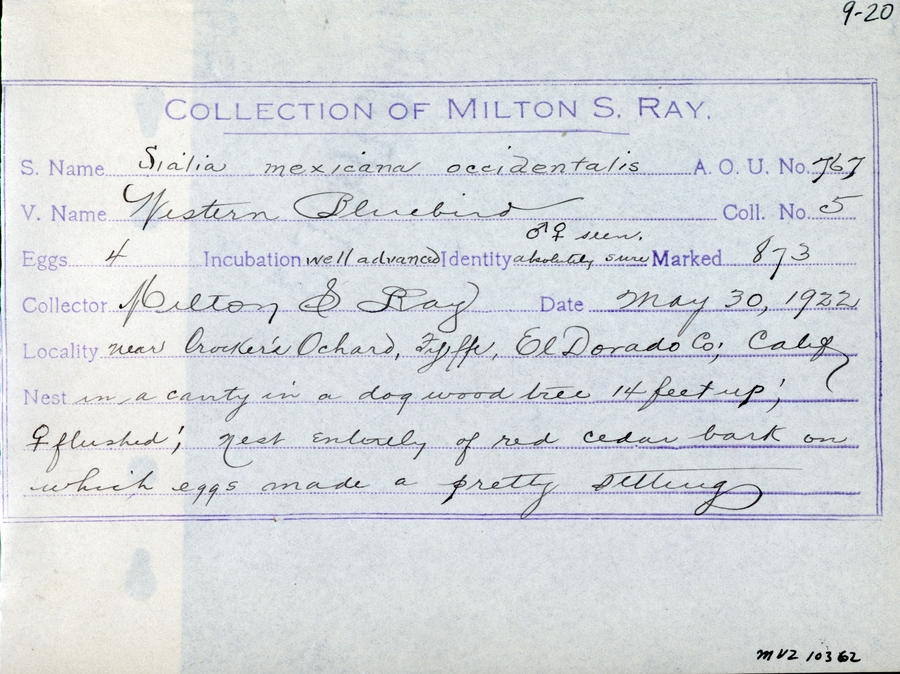 9-20
COLLECTION OF MILTON S. RAY.
S. Name Sialia mexicana occidentalis A. O. U. No. 767
V. Name Western Bluebird Coll. No. 5
♂♀ seen.
Eggs 4 Incubation well advanced Identity absolutely sure Marked 873
Collector Milton S Ray Date May 30, 1922
Locality near Crocker's Ochard, Fyffe, El Dorado Co; Calif
Nest in a cavity in a dogwood tree 14 feet up;
♀ flushed; nest entirely of red cedar bark on
which eggs made a pretty setting
MVZ 10362